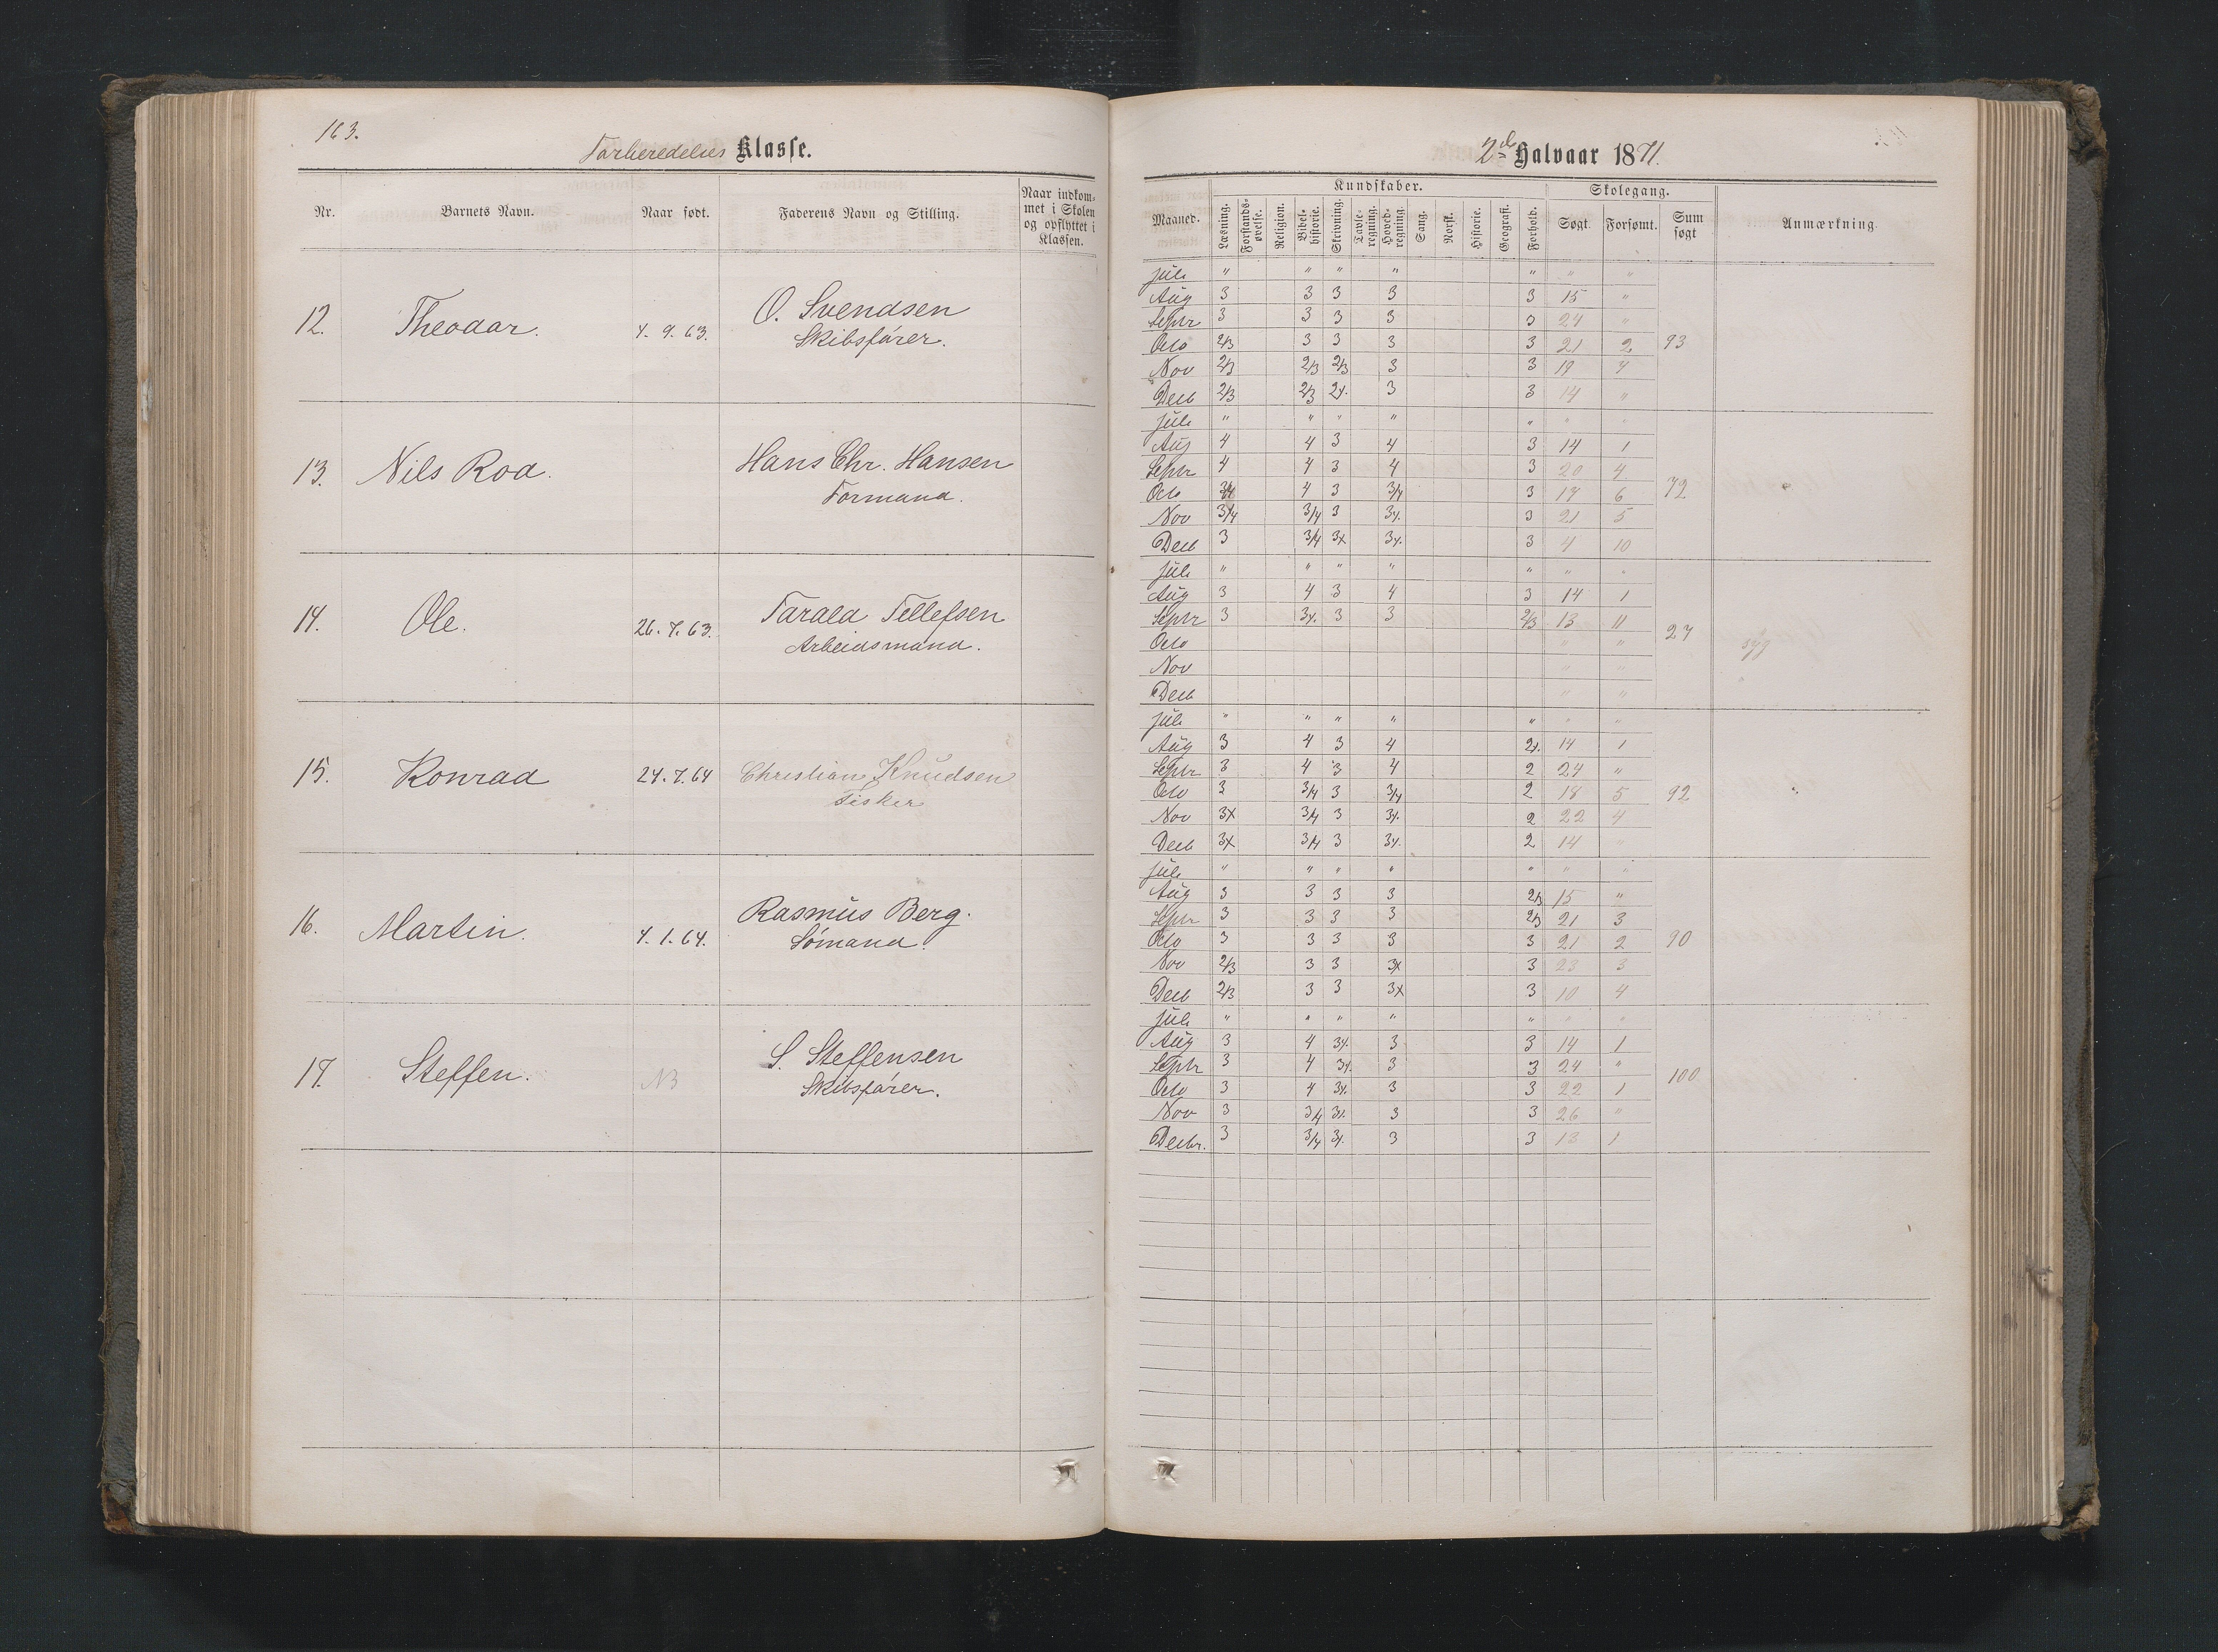 163.
Forberedelses Klasse.
Nr.
Barnets Navn.
Naar født.
Faderens Navn og Stilling.
Naar indkom-
met i Skolen
og opflyttet i
Klassen.
12.
Theodor.
7. 9. 63.
O. Svendsen
Skibsfører.
13.
Nils Roa.
Hans Chr. Hansen
Formand.
14.
Ole.
26. 7. 63.
Tarald Tellefsen
Arbeidsmand.
15.
Konrad
24. 7. 64
Christian Knudsen
Fisker
16.
Martin.
7. 1. 64.
Rasmus Berg.
Sömand.
17.
Steffen.
NB
S. Steffensen
Skibsfører.
2de Halvaar 1871.
Maaned.
Kundskaber.
Læsning.
Forstands-
øvelse.
Religion.
Bibel-
historie.
Skrivning.
Tavle-
regning.
Hoved-
regning.
Sang.
Norsk.
Historie.
Geografi.
Forhold.
Skolegang.
Søgt.
Forsømt.
Sum
søgt
Anmærkning
Juli " " " " " " "
Aug 3 3 3 3 3 15 "
Septr 3 3 3 3 3 24 "
Octo 2/3 3 3 3 3 21 2 93
Nov 2/3 2/3 2/3 3 3 19 4
Decb 2/3 2/3 2x. 3 3 14 "
Juli " " " " " " "
Aug 4 4 3 4 3 14 1
Septr 4 4 3 4 3 20 4
Octo 3/4 4 3 3/4 3 17 6 72
Nov 3/4 3/4 3 3x. 3 21 5
Decb 3 3/4 3x 3x. 3 4 10
Juli " " " " " " "
Aug 3 4 3 4 3 14 1
Septr 3 3x. 3 3 2/3 13 11 27
Octo " "
syg
Nov " "
Decb " "
Juli " " " " " " "
Aug 3 4 3 4 2x. 14 1
Septr 3 4 3 4 2 24 "
Octo 3 3/4 3 3/4 2 18 5 92
Nov 3x 3/4 3 3x. 2 22 4
Decb 3x 3/4 3 3x. 2 14 "
Juli " " " " " " "
Aug 3 3 3 3 2/3 15 "
Septr 3 3 3 3 2/3 21 3
Octo 3 3 3 3 3 21 2 90
Nov 2/3 3 3 3x 3 23 3
Decb 2/3 3 3 3x 3 10 4
Juli " " " " " " "
Aug 3 4 3x. 3 3 14 1
Septr 3 4 3x. 3 3 24 "
Octo 3 4 3x. 3 3 22 1 100
Nov 3 3/4 3x. 3 3 26 "
Decbr. 3 3/4 3x. 3 3 13 1